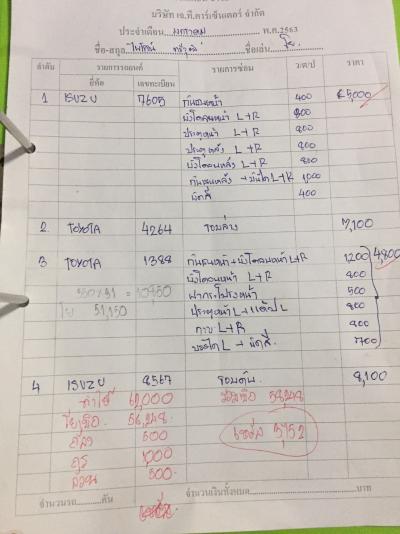 บริษัท เจ.ที.คาร์เซ็นเตอร์ จำกัด
ประจำเดือน มกราคม พ.ศ.2563
ชื่อ-สกุล ชื่อเล่น
ลำดับ รายการรถยนต์ รายการซ่อม ว/ด/ป ราคา
ยี่ห้อ เลขทะเบียน
1 ISUZU 7605 กันชนหน้า 400 5,000
บังโคลนหน้า L+R 800
ประตูหน้า L+R 800
ประตูหลัง L+R 800
บังโคลนหลัง L+R 800
กันชนหลัง + บันได L+R 1000
400
2 TOYOTA 4264 รอบล่าง 7,100
3 TOYOTA 1388 กันชนหน้า+บังโคลนหน้า L+R 1200 4,800
บังโคลนหน้า L+R 800
ฝากระโปรงหน้า 500
51,150 ประตูหน้า L+ L 800
L+R 800
L + 700
4 ISUZU 8567 รอบคัน 8,100
ค่าใช้ 62,000 58,248
56,248
500 เหลือ 3,752
1000
500
จำนวนรถ คัน จำนวนเงินทั้งหมด บาท